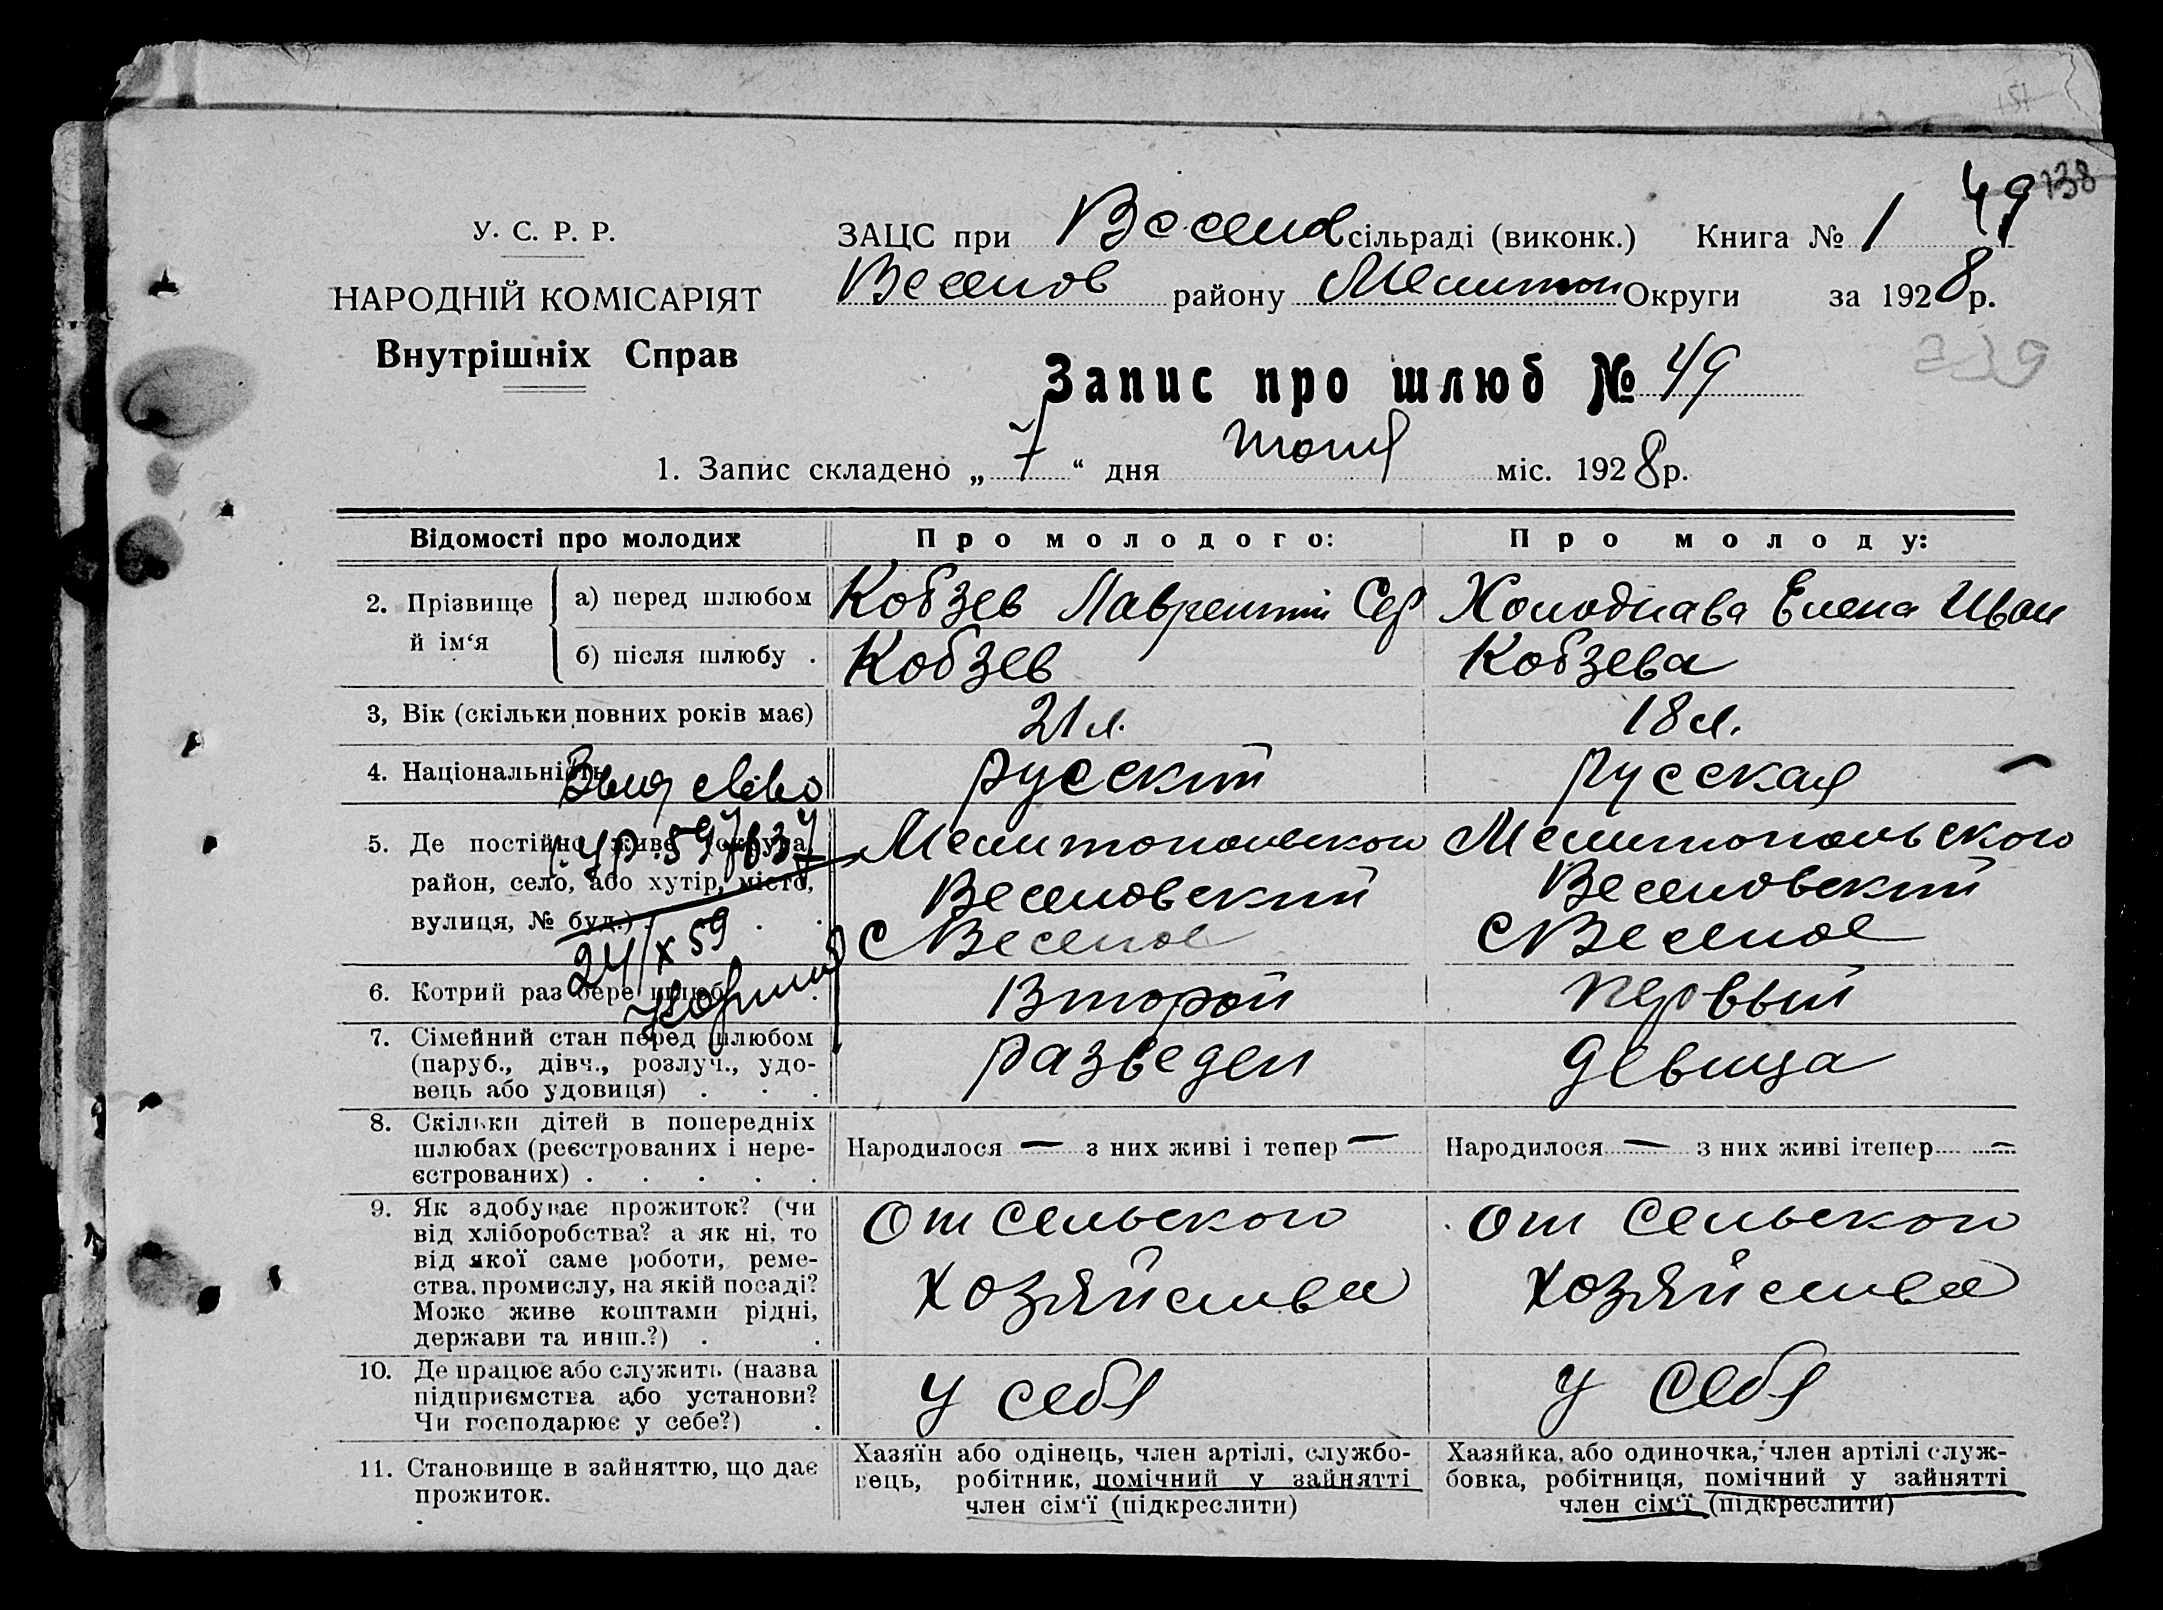 138
49
У. С. Р. Р.
НАРОДНІЙ КОМІСАРІЯТ
Внутрішніх Справ
ЗАЦС при Веселов сільраді (виконк.) Книга № 1
Веселов району Мелитоп Округи за 1928 р.
239
Запис про шлюб № 49
1. Запис складено „ 7 “ дня июня міс. 1928 р.
Відомості про молодих Про молодого: Про молоду:
2. Прізвище й ім‘я а) перед шлюбом Кобзев Лаврентий Сер Холоднава Елена Иван
б) після шлюбу . Кобзев Кобзева
3, Вік (скільки повних років має) 21 л. 18 л.
4. Національність русский русская
Выд св-во
5. Де постійно живе (округа, Мелитопольского Мелитопольского
район, село, або хутір, місто, Веселовский Веселовский
вулиця, № буд.) . . . с Веселое с Веселое
24/X 59
6. Котрий раз бере шлюб . Второй первый
7. Сімейний стан перед шлюбом разведен девица
(паруб., дівч., розлуч., удо-
вець або удовиця) . . .
8. Скільки дітей в попередніх
шлюбах (реєстрованих і нере- Народилося — з них живі і тепер — Народилося — з них живі ітепер —
єстрованих) . . . . .
9. Як здобуває прожиток? (чи От сельского От сельского
від хліборобства? а як ні, то
від якої саме роботи, реме-
ства, промислу, на якій посаді? хозяйства хозяйства
Може живе коштами рідні,
держави та инш.?) . .
10. Де працює або служить (назва у себя у себя
підприємства або установи?
Чи господарює у себе?) .
11. Становище в зайняттю, що дає
прожиток.
Хазяїн або одінець, член артілі, службо-
вець, робітник, помічний у зайнятті
член сім‘ї (підкреслити)
Хазяйка, або одиночка, член артілі служ-
бовка, робітниця, помічний у зайнятті
член сім‘ї (підкреслити)